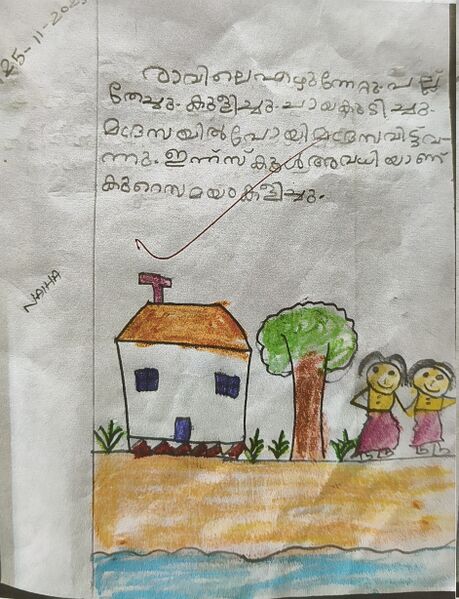 25-11-202
രാവിലെഎഴുന്നേറ്റു. പല്ല്
തേച്ചു. കുളിച്ചു. ചായകുടിച്ചു.
മദ്രസയിൽപോയിമദ്രസവിട്ട്വ
ന്നു. ഇന്ന്സ്കൂൾഅവധിയാണ്
കുറെസമയംകളിച്ചു.
NAIHA